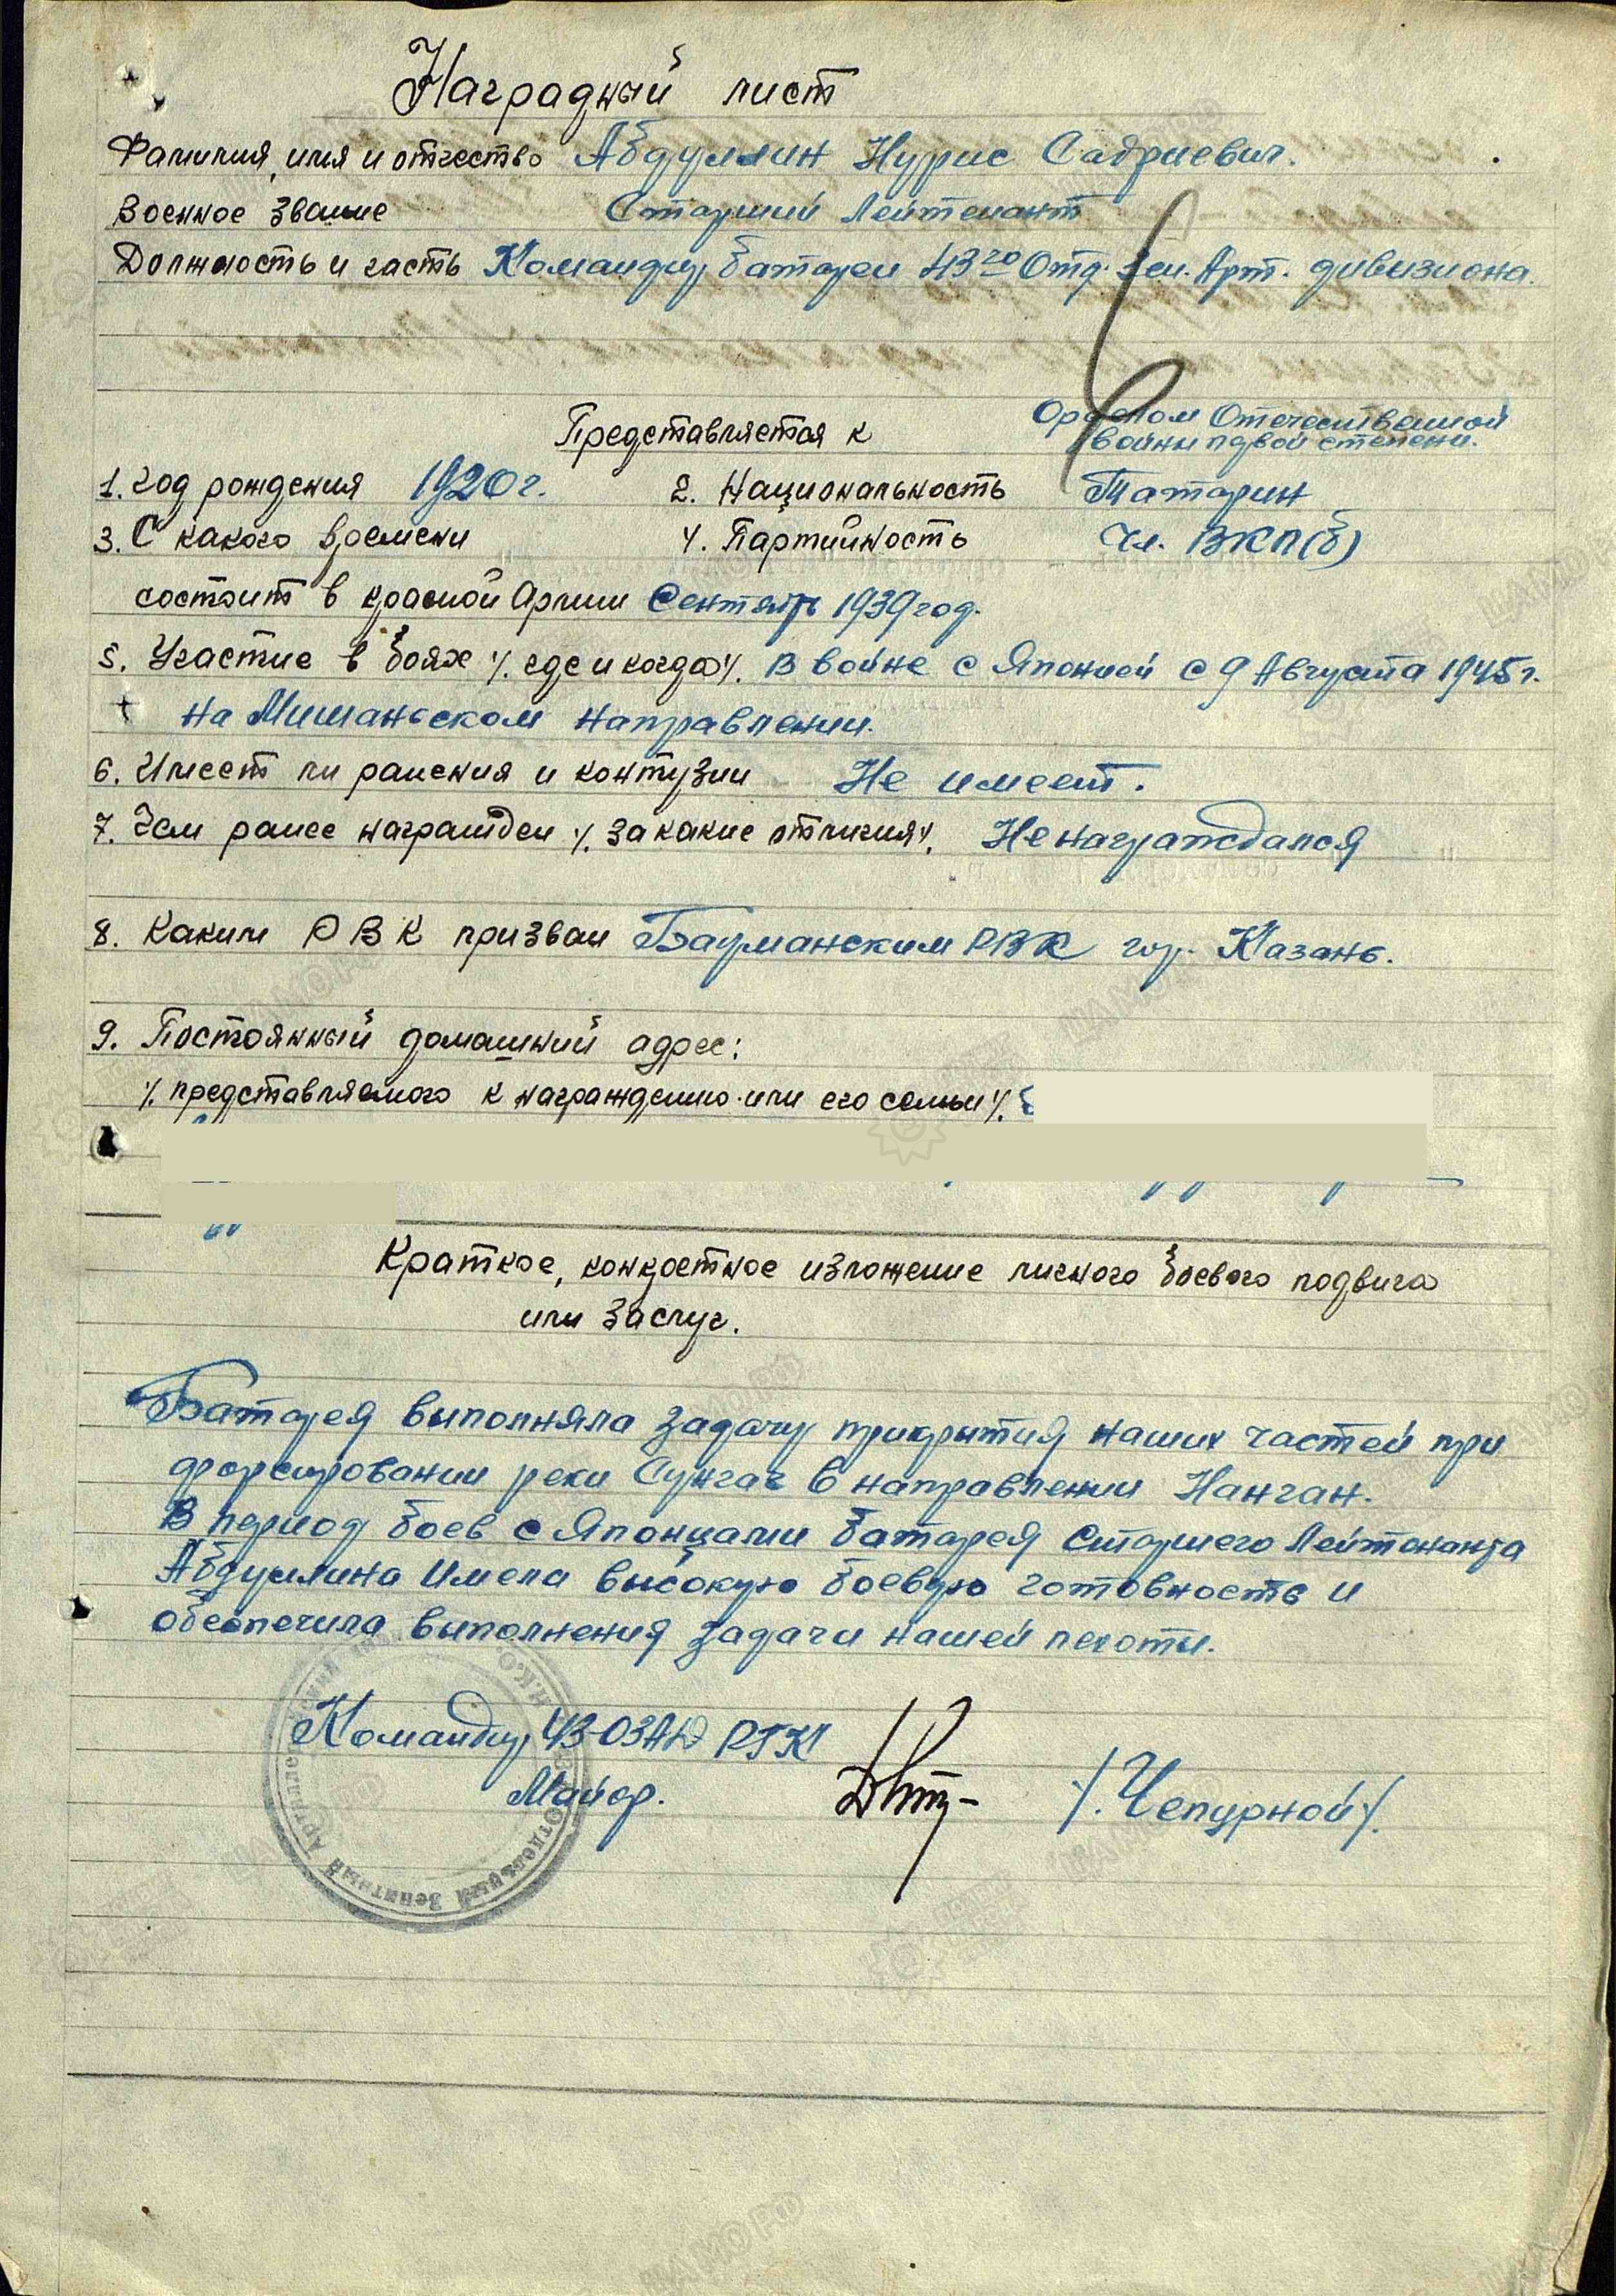 Наградный лист
Фамилия, имя и отчество Абдуллин Нурис Садриевич.
Военное звание Старший Лейтенант
Должность и часть Командир батареи 43го Отд. Зен. Арт. дивизиона.
Представляется к Орденом Отечественной
войны первой степени.
1. Год рождения 1920 г. 2. Национальность Татарин
3. С какого времени 4. Партийность Чл. ВКП(б)
состоит в красной Армии Сентябрь 1939 год.
5. Участие в боях /. где и когда /. В войне с Японией с 9 Августа 1945 г.
на Мишаньском направлении.
6. Имеет ли ранения и контузии Не имеет.
7. Чем ранее награжден /. за какие отличия /. Не награждался
8. Каким РВК призван Бауманским РВК гор. Казань.
9. Постоянный домашний адрес:
/. представляемого к награждению или его семьи /.
Краткое, конкретное изложение личного боевого подвига
или заслуг.
Батарея выполняла задачу прикрытия наших частей при
форсировании реки Сунгач в направлении Нанган.
В период боев с Японцами батарея Старшего Лейтенанта
Абдуллина Имела высокую боевую готовность и
обеспечила выполнения задачи нашей пехоты.
Командир 43-ОЗАД РГК
Майор. /. Чепурной /.
Отдельный Зенитный